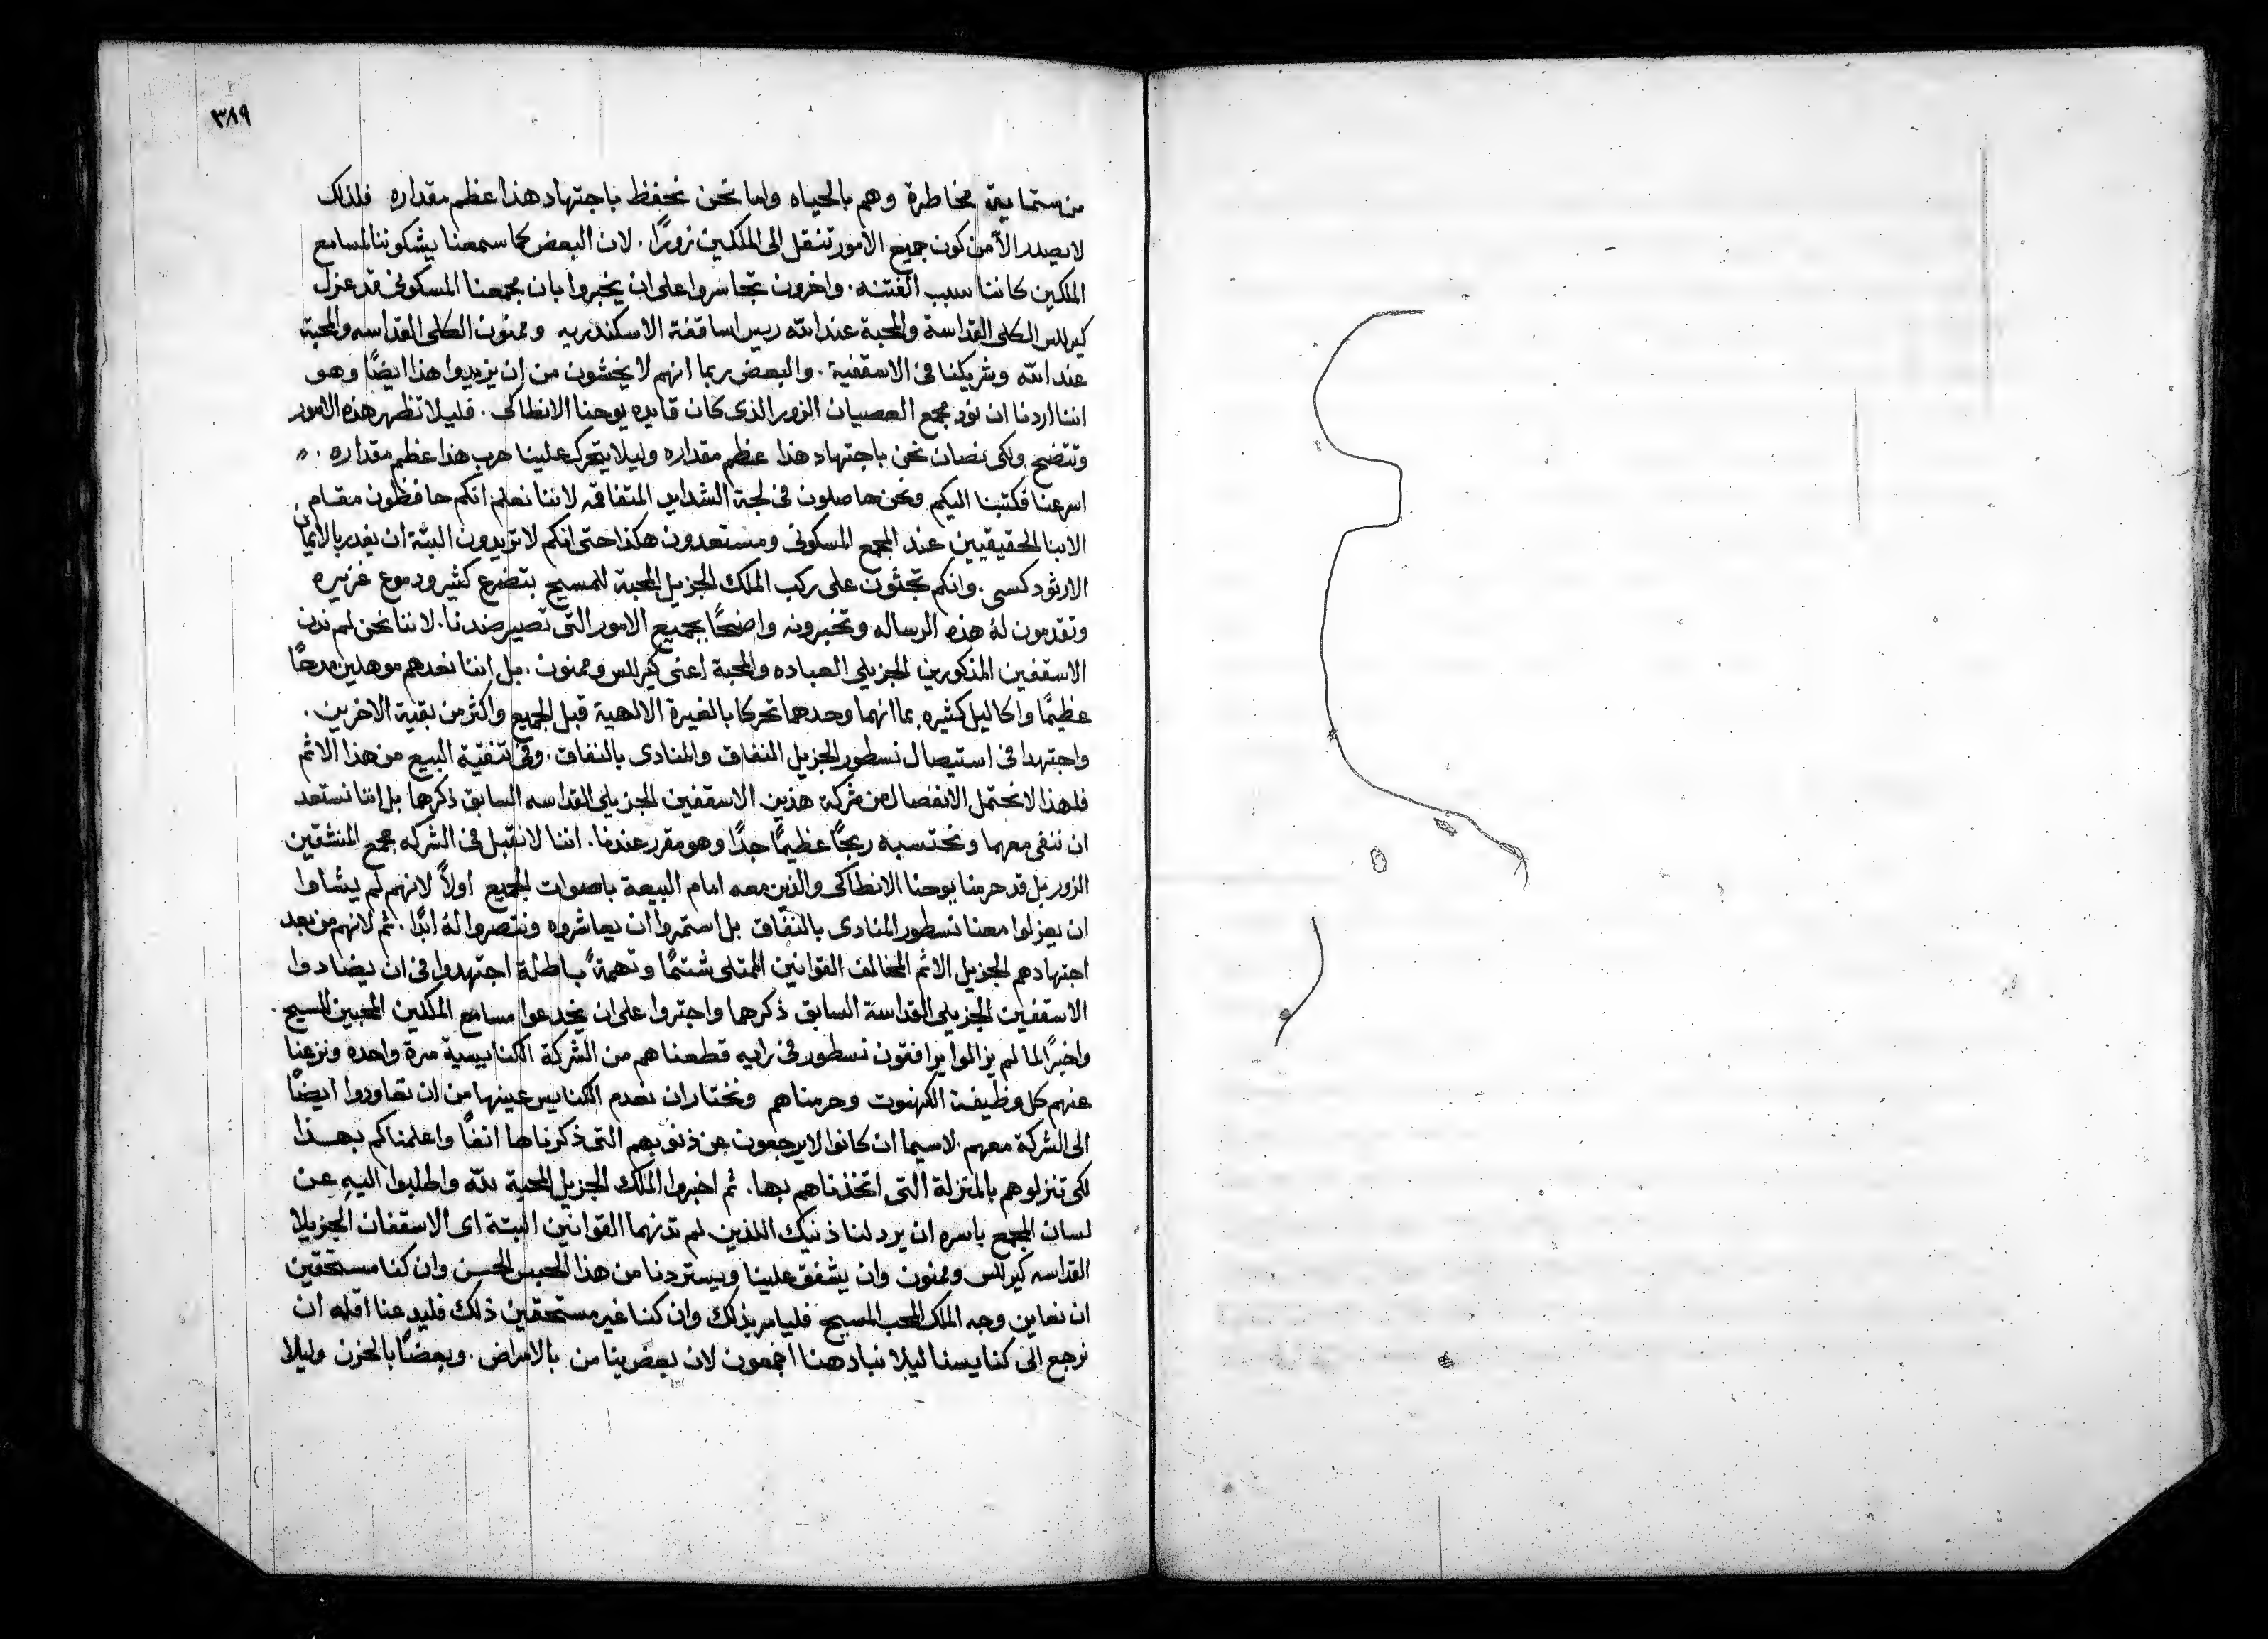 ٣٨٩
من ستماية مخاطرة وهم بالحياه واما نحن نحفظ باجتهاد هذا عظم مقداره فلذلك
لا يصدر الا من كون جميع الامور تنقل الى الملكين زورًا. لان البعض كما سمعنا يشكوننا لمسامع
الملكين كاننا سبب الفتنه. واخرون تجاسروا على ان يخبروا بان مجمعنا المسكونى قد عزل
كيرللس الكلى القداسة والمحبة عند الله ريس اساقفة الاسكندريه وممنون الكلى القداسه والمحبة
عند الله وشريكنا فى الاسقفية. والبعض ربما انهم لا يخشون من ان يزيدوا هذا ايضًا وهو
اننا اردنا ان نود مجمع العصيان الزور الذى كان قايده يوحنا الانطاكى. فليلا تظهر هذه الامور
وتتضح ولكى نصان نحن باجتهاد هذا عظم مقداره وليلا يتحرك علينا حرب هذا عظم مقداره.
اسرعنا فكتبنا اليكم ونحن حاصلون فى لجة الشدايد المتفاقمه لاننا نعلم انكم حافظون مقام
الابنا الحقيقيين عند المجمع المسكونى ومستعدون هكذا حتى انكم لا تريدون البتة ان يغدر بالايمان
الارثودكسى. وانكم تجثون على ركب الملك الجزيل المحبة للمسيح بتضرع كثير ودموع غزيره
وتقدمون لهُ هذه الرساله وتخبرونه واضحًا بجميع الامور التى تصير ضدنا. لاننا نحن لم ندن
الاسقفين المذكورين الجزيلى العباده والمحبة اعنى كيرللس وممنون. بل اننا نعدهم موهلين مدحًا
عظيمًا واكاليل كثيره بما انهما وحدهما تحركا بالغيرة الالهية قبل الجميع واكثر من بقية الاخرين.
واجتهدا فى استيصال نسطور الجزيل النفاق والمنادى بالنفاق. وفى تنقية البيع من هذا الاثم
فلهذا لا نحتمل الانفصال من شركة هذين الاسقفين الجزيلى القداسه السابق ذكرهما بل اننا نستعد
ان ننفى معهما ونحتسبه ربحًا عظيمًا جدًا وهو مقرر عندنا. اننا لا نقبل فى الشركه مجمع المنشقين
الزور بل قد حرمنا يوحنا الانطاكى والذين معه امام البيعة باصوات الجميع اولاً لانهم لم يشاوا
ان يعزلوا معنا نسطور المنادى بالنفاق بل استمروا ان يعاشروه وينتصروا لهُ ابدًا. ثم لانهم من بعد
اجتهادهم الجزيل الاثم المخالف القوانين الممتلى شتمًا وتهمةً باطلة اجتهدوا فى ان يضادوا
الاسقفين الجزيلى القداسة السابق ذكرهما واجتروا على ان يخدعوا مسامع الملكين المحبين المسيح.
واخيرًا لما لم يزالوا يوافقون نسطور فى رايه قطعناهم من الشركة الكنايسية مرة واحده ونزعنا
عنهم كل وظيفة الكهنوت وحرمناهم ونختار ان نعدم الكنايس عينها من ان تعاودوا ايضًا
الى الشركة معهم. لاسيما ان كانوا لا يرجعون عن ذنوبهم التى ذكرناها انفًا واعلمناكم بهذا
لكى تنزلوهم بالمنزلة التى اتخذناهم بها. ثم اخبروا الملك الجزيل المحبة لله واطلبوا اليهِ عن
لسان المجمع باسره ان يرد لنا ذنيك اللذين لم تدنهما القوانين البتة اى الاسقفان الجزيلا
القداسه كيرللس وممنون وان يشفق علينا ويستردنا من هذا الحبس الحسن وان كنا مستحقين
ان نعاين وجه الملك المحب المسيح فليامر بذلك وان كنا غير مستحقين ذلك فليدعنا اقله ان
نرجع الى كنايسنا ليلا نباد هنا اجمعون لان بعضٌ منا من بالامراض. وبعضًا بالحزن وليلا